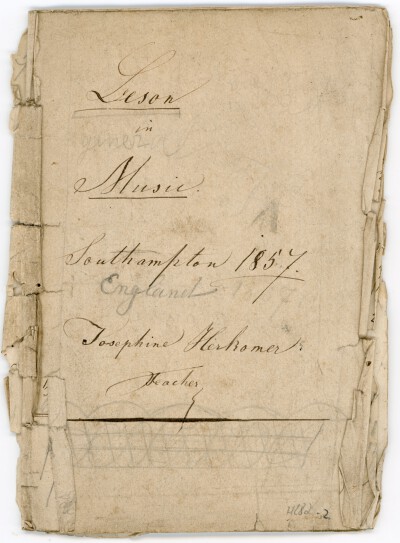 Leson
in
Music.
Southampton 1857.
England
Josephine Herkomer
Teacher
4282-2